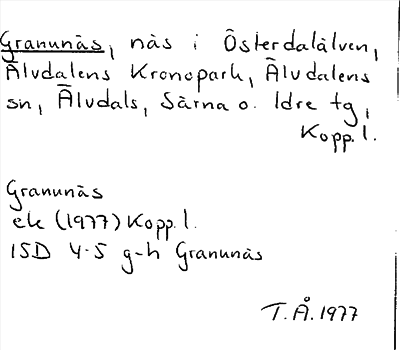 Granunäs, näs i Österdalälven,
Älvdalens Kronopark, Älvdalens
sn, Älvdals, Särna o. Idre tg,
Kopp. l.
Granunäs
ek (1977) Kopp. l.
15D 4-5 g-h Granunäs
T.Å. 1977